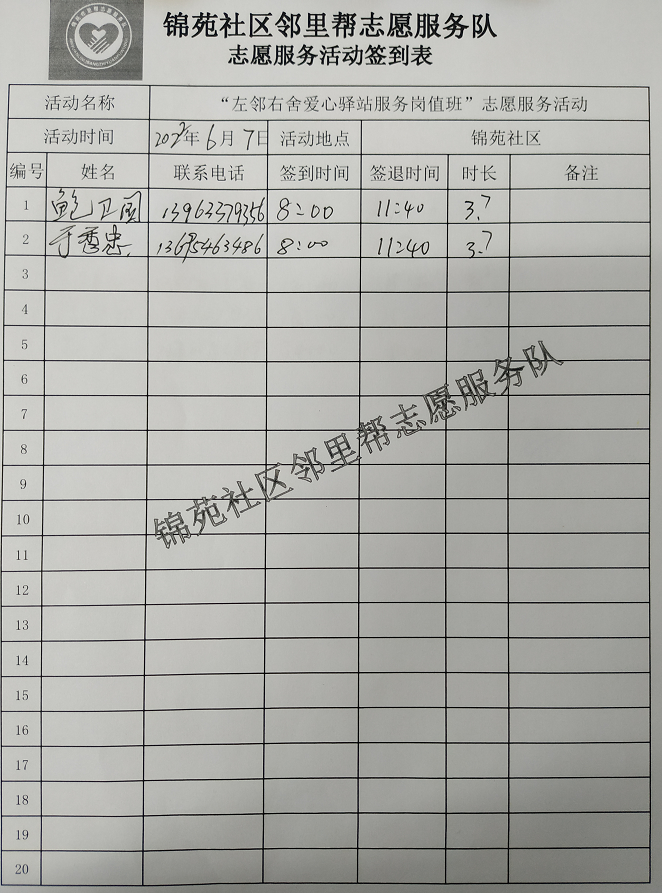 锦苑社区邻里帮志愿服务队
志愿服务活动签到表
活动名称 “左邻右舍爱心驿站服务岗值班”志愿服务活动
活动时间 2022年6月7日 活动地点 锦苑社区
编号 姓名 联系电话 签到时间 签退时间 时长 备注
1 鲍卫国 13963379356 8:00 11:40 3.7
2 于秀忠 13695463486 8:00 11:40 3.7
3
4
5
6
7
8
9
10
11
12
13
14
15
16
17
18
19
20
锦苑社区邻里帮志愿服务队